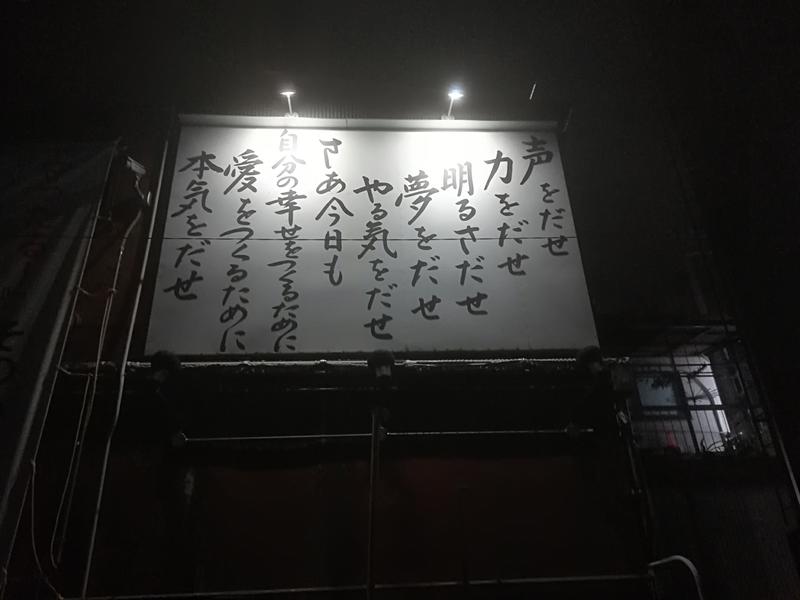 声をだせ
力をだせ
明るさだせ
夢をだせ
やる気をだせ
さあ今日も
自分の幸せをつくるために
愛をつくるために
本気をだせ